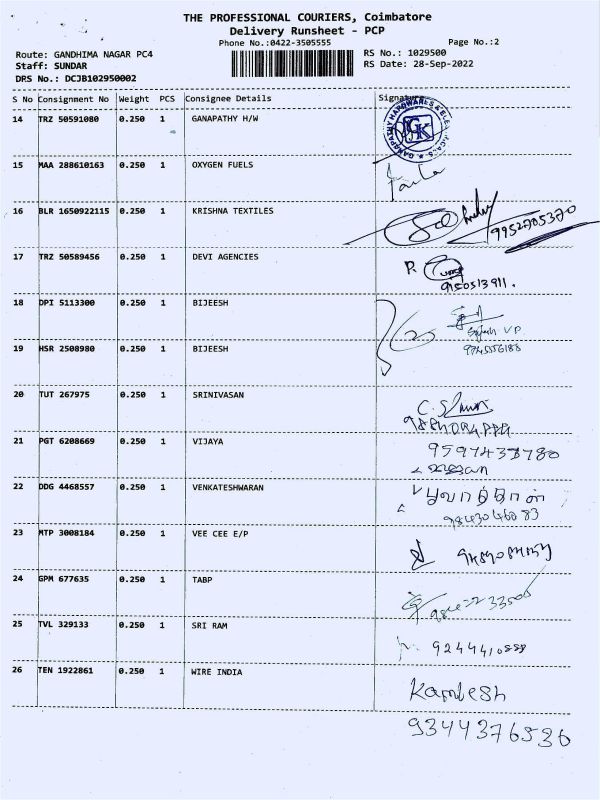 THE PROFESSIONAL COURIERS, Coimbatore
Delivery Runsheet - PCP
Phone No.:0422-3505555
Page No.:2
Route: GANDHIMA NAGAR PC4
RS No.: 1029500
Staff: SUNDAR
RS Date: 28-Sep-2022
DRS No.: DCJB102950002
S No Consignment No Weight PCS Consignee Details Signature
14 TRZ 50591080 0.250 1 GANAPATHY H/W
GANAPATHY HARDWARES & ELECTRICALS
GK
15 MAA 288610163 0.250 1 OXYGEN FUELS
16 BLR 1650922115 0.250 1 KRISHNA TEXTILES
9952785370
17 TRZ 50589456 0.250 1 DEVI AGENCIES
P.
9150513911.
18 DPI 5113300 0.250 1 BIJEESH
V.P
19 HSR 2508980 0.250 1 BIJEESH
9745556188
20 TUT 267975 0.250 1 SRINIVASAN
21 PGT 6208669 0.250 1 VIJAYA
22 DDG 4468557 0.250 1 VENKATESHWARAN
9843046083
23 MTP 3008184 0.250 1 VEE CEE E/P
24 GPM 677635 0.250 1 TABP
25 TVL 329133 0.250 1 SRI RAM
9244410888
26 TEN 1922861 0.250 1 WIRE INDIA
Kamlesh
9344376536